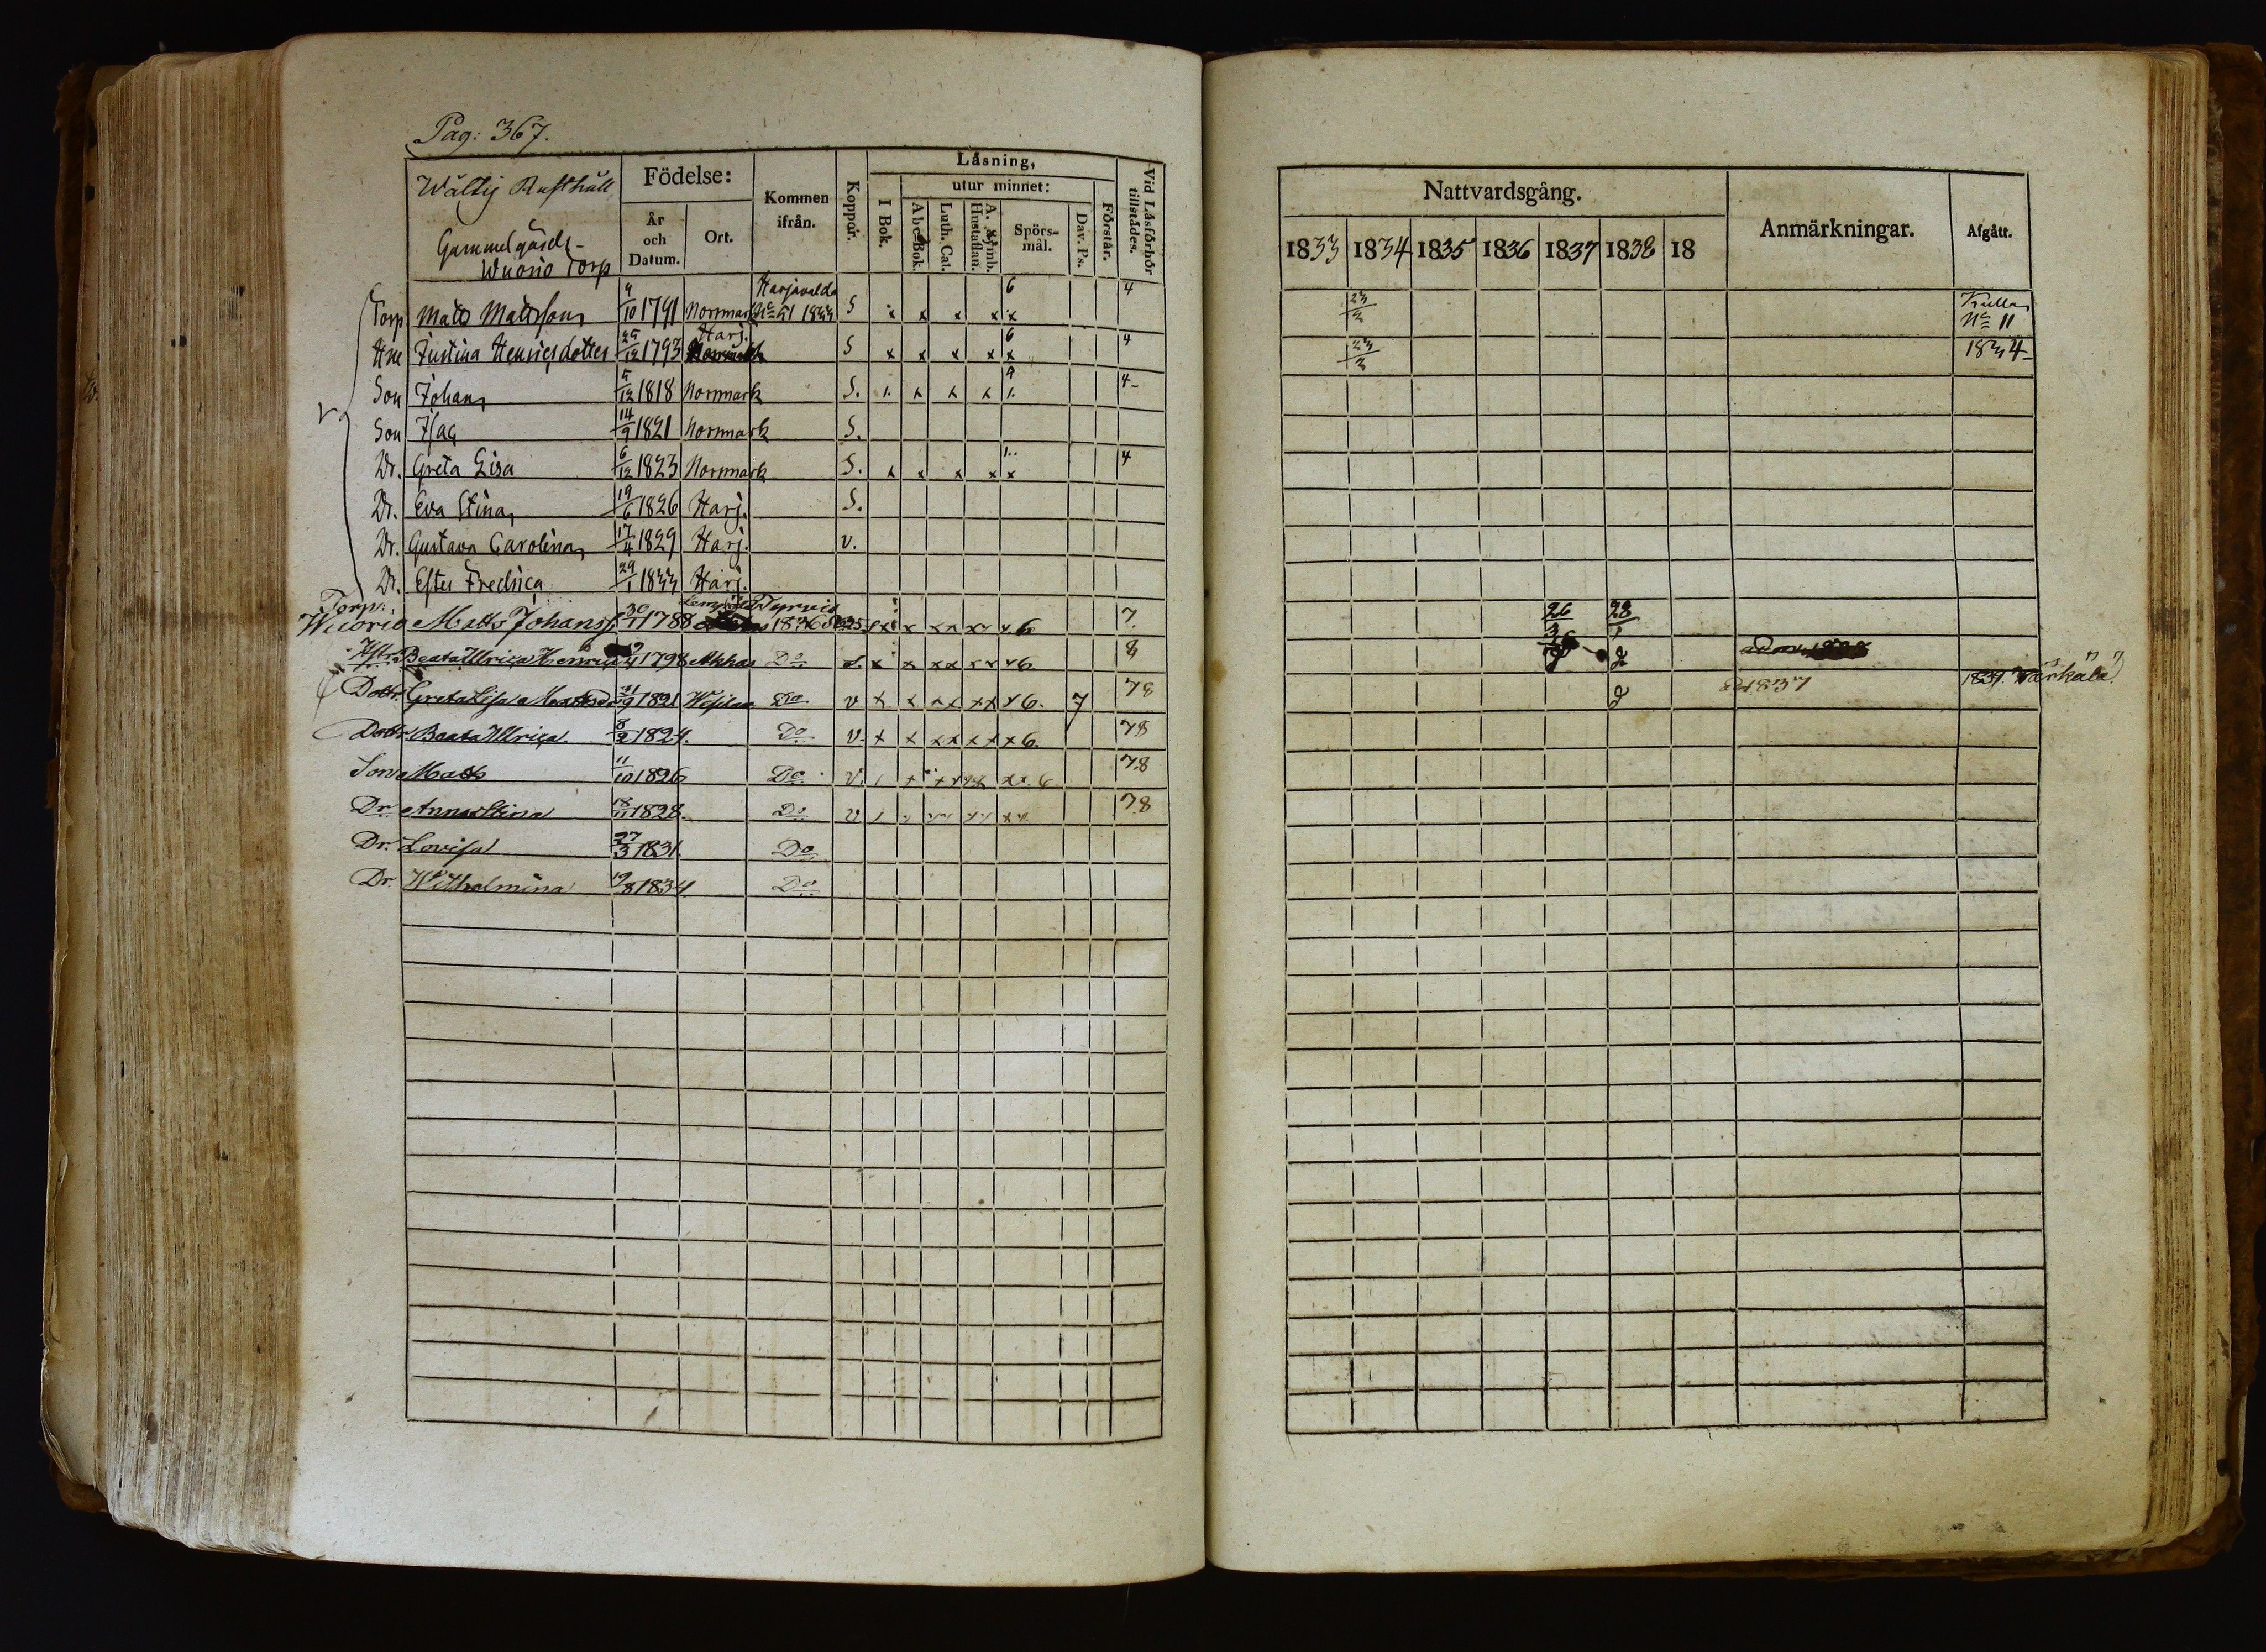 Pag: 367.
Wåltig Rusthåll
Gammelgårds-
Wuorio Torp
Födelse:
År och Datum.
Ort.
Kommen ifrån.
Koppor.
Läsning,
utur minnet:
I Bok.
Abc-Bok.
Luth. Cat.
A. Symb. Hustaflan.
Spörs-mål.
Dav. Ps.
Förstår.
Vid Läsförhör tillstädes.
Torp Matts Mattsson 4/10 1791 Norrmark Harjavalda No 51 1833 S x x x x x 6 4
Hne Justina Henricsdotter 25/12 1793 Harj. S x x x x x 6 4
Son Johan 5/12 1818 Norrmark S. 4
Son Isac 14/9 1821 Norrmark S.
Dr. Greta Lisa 6/12 1823 Norrmark S. x x x x x 4
Dr. Eva Stina 19/6 1826 Harj. S.
Dr. Gustava Carolina 17/4 1829 Harj. v.
Dr. Ester Fredrica 29/1 1833 Harj.
Torp:
Wuorio Matts Johanss. 30/1 1788 Tyrvis 1836 6 7.
Hstr. Beata Ulrica Henricsd 1798 Akkas Do x x x x x x x 6 8
Dottr. Greta Lisa Mattsd 21/9 1821 Do v x x x x x x x 6. 7 78
Dottr Beata Ulrica. 8/2 1824. Do v. x x x x x x x 6. 78
Son Matts 11/10 1826 Do. v. 6 78
Dr. Anna Stina 18/11 1828. Do v 78
Dr. Lovisa 27/3 1831. Do
Dr. Wilhelmina 19/8 1834. Do
Nattvardsgång.
1833 1834 1835 1836 1837 1838 18
Anmärkningar.
Afgått.
23/3 Kulla No 11
23/3 1834
26/3 28/1
1837 1839.